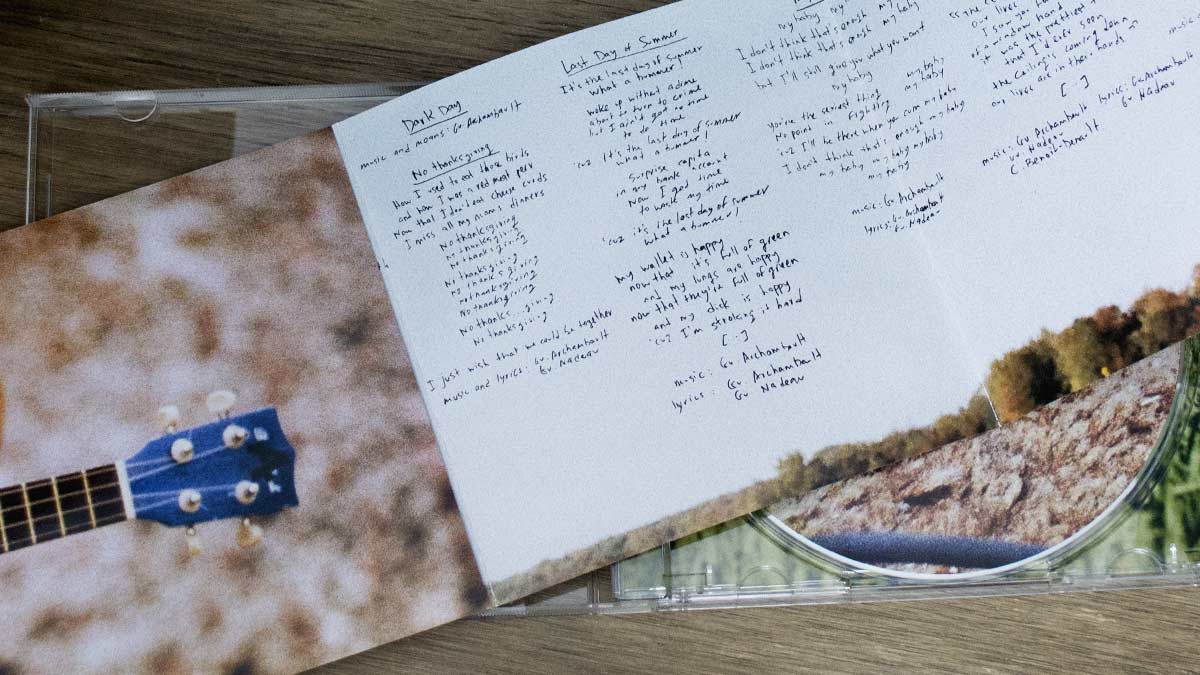 Dark Day
music and moans: Gu Archambault
No thanksgiving
How I used to eat those birds
and ham I was a red meat perv
Now that I don't eat cheese curds
I miss all my mom's dinners
No thanksgiving
no thanksgiving
no thanksgiving
No thanksgiving
no thanksgiving
no thanksgiving
no thanksgiving
No thanks...giving
No thanksgiving
I just wish that we could be together
music and lyrics: Gu Archambault
Gu Nadeau
Last Day of Summer
It's the last day of summer
what a tummer!
woke up without a dime
about to turn to crime
but I ain't got time
to do crime
'cuz it's the last day of summer
what a tummer!
Surprise capita
in my bank account
Now I got time
to work my time
'cuz it's the last day of summer
what a tummer!
my wallet is happy
now that it's full of green
and my lungs are happy
now that they're full of green
and my dick is happy
'cuz I'm stroking it hard
[...]
music: Gu Archambault
lyrics: Gu Archambault
Gu Nadeau
my baby my
I don't think that's enough my baby
I don't think that's enough my baby
but I'll still give you what you want
my baby my baby
my baby
You're the cutest thing
No point in fighting
'cuz I'll be there when you cum my baby
I don't think that's enough my baby
my baby my baby my baby
my baby
music: Gu Archambault
lyrics: Gu Archambault
Gu Nadeau
our lives
I saw you
of a window hand
it was the prettiest
that I'd ever seen
the ceiling's coming down
our lives are in their hands
[...]
music: Gu Archambault
Gu Nadeau
C. Benoit-Denault
lyrics: Gu Archambault
Gu Nadeau
music